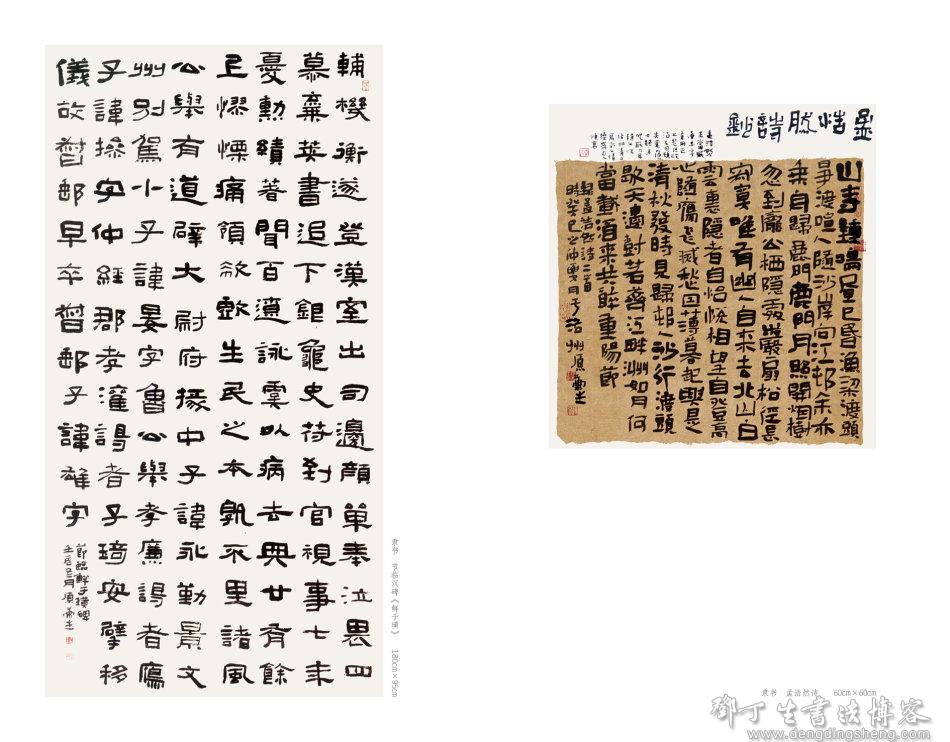 輔機衡遂登漢室出司邊顏單奉泣畏四
慕棄英書追下銀龜史符到官視事七年
憂勳績著聞百遼詠虞以病去典廿有餘
上慘慄痛領欷歔生民之本孰不里諸風
公舉有道辟大尉府掾中子諱永勤景文
州別駕小子諱晏字魯公舉孝廉謁者鴈
子諱操字仲經郡孝灌謁者子琦安孳移
儀故督郵早卒督郵子諱雄字
節臨鮮于璜碑
壬辰三月
隶书 节临汉碑《鲜于璜》 180cm×95cm
孟浩然詩鈔
山寺鐘鳴晝已昏漁梁渡頭
爭渡喧人隨沙岸向江邨余亦
乘舟歸鹿門鹿門月照開煙樹
忽到龐公栖隱處巖扉松徑長
寂寞唯有幽人自來去北山白
雲裏隱者自怡悅相望自登高
心隨鴈飛滅愁因薄暮起興是
清秋發時見歸邨人沙行渡頭
歇天邊樹若薺江畔洲如月何
當載酒來共醉重陽節
錄孟浩然詩二首
時癸巳之仲夏月于洺州
隶书 孟浩然诗 60cm×60cm
鄧丁生書法博客
www.dengdingsheng.com